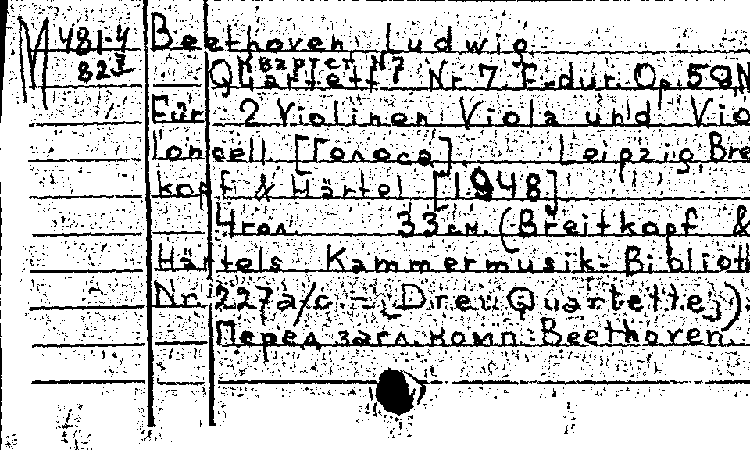 М 481-4 Beethoven, Ludwig
823 Квартет №7
Quartett Nr 7 F-dur. Op. 59 N
Für 2 Violinen Viola und Vio
loncell. [Голоса]. Leipzig, Bre
kopf & Härtel [1948]
4 гол. 33 см. (Breitkopf &
Härtels Kammermusik-Biblioth
Nr 227a/c. - Drei Quartette).
Перед загл. комп.: Beethoven.